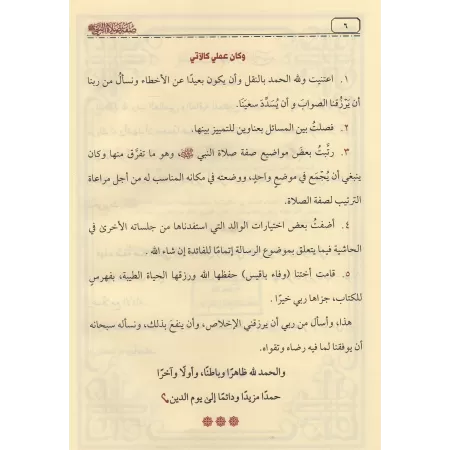 ٦ صفة صلاة النبي ﷺ
وكان عملي كالآتي
١. اعتنيت ولله الحمد بالنقل وأن يكون بعيدًا عن الأخطاء ونسألُ من ربنا
أن يَرْزُقنا الصوابَ و أن يُسَدِّدَ سعيَنَا.
٢. فصلتُ بين المسائل بعناوين للتمييز بينها.
٣. رتَّبتُ بعضَ مواضيع صفة صلاة النبي ﷺ، وهو ما تفرَّق منها وكان
ينبغي أن يُجْمَع في موضعٍ واحدٍ، ووضعته في مكانه المناسب له من أجل مراعاة
الترتيب لصفة الصلاة.
٤. أضفتُ بعض اختيارات الوالد التي استفدناها من جلساته الأخرىٰ في
الحاشية فيما يتعلق بموضوع الرسالة إتمامًا للفائدة إن شاء الله .
٥. قامت أختنا (وفاء باقيس) حفظها الله ورزقها الحياة الطيبة، بفهرسٍ
للكتاب، جزاها ربي خيرًا .
هذا، وأسأل من ربي أن يرزقني الإخلاص، وأن ينفعَ بذلك، ونسأله سبحانه
أن يوفقنا لما فيه رضاه وتقواه.
والحمد لله ظاهرًا وباطنًا، وأولًا وآخرًا
حمدًا مزيدًا ودائمًا إلىٰ يوم الدين